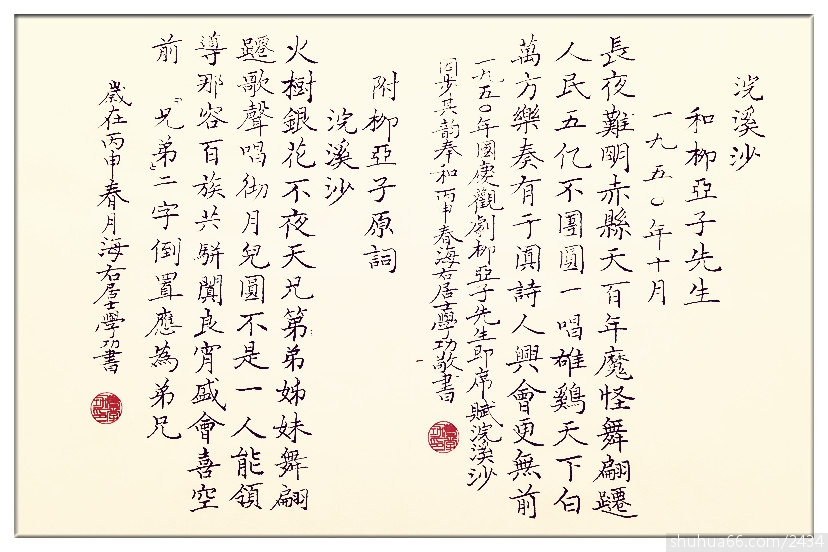 浣溪沙
和柳亞子先生
一九五〇年十月
長夜難明赤縣天百年魔怪舞翩躚
人民五亿不團圓一唱雄鷄天下白
萬方樂奏有于闐詩人興會更無前
一九五〇年國庚觀劇柳亞子先生即席賦浣溪沙
因步其韵奉和丙申春海右居士學功敬書
附柳亞子原詞
浣溪沙
火樹銀花不夜天兄第弟姊妹舞翩
躚歌聲唱彻月兒圓不是一人能領
導那容百族共駢闐良宵盛會喜空
前 『兄弟』二字倒置應為弟兄
歲在丙申春月海右居士學功書
shuhua66.com/2434